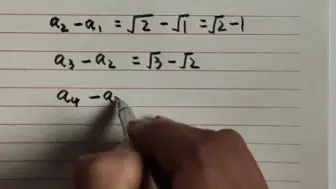 a₂ - a₁ = √2 - √1 = √2 - 1
a₃ - a₂ = √3 - √2
a₄ - a